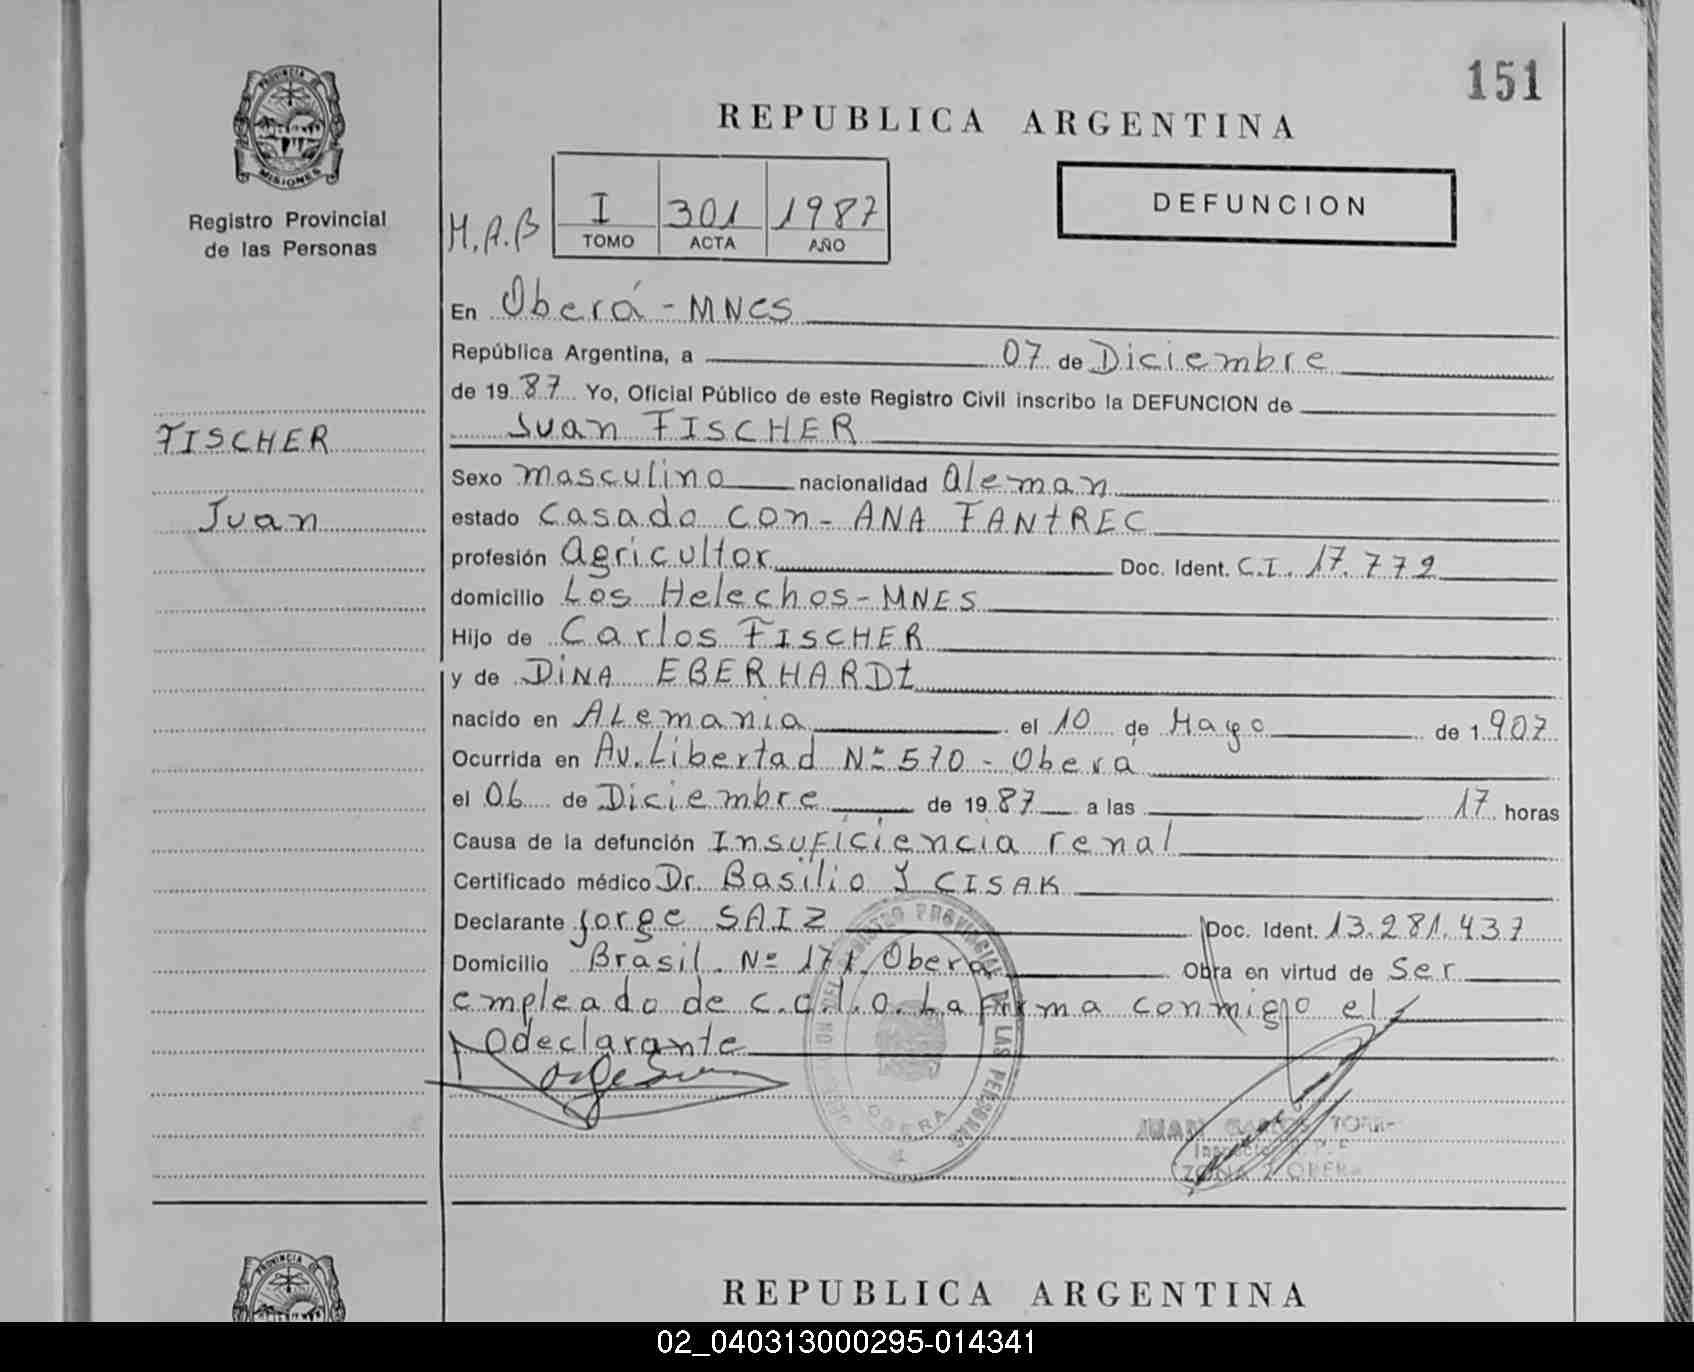 151
PROVINCIA DE
MISIONES
Registro Provincial
de las Personas
REPUBLICA ARGENTINA
DEFUNCION
H.A.B
I 301 1987
TOMO ACTA AÑO
En Oberá - MNES
República Argentina, a 07 de Diciembre
de 19 87 Yo, Oficial Público de este Registro Civil inscribo la DEFUNCION de
FISCHER
Juan FISCHER
Sexo masculino nacionalidad Aleman
Juan
estado casado con - ANA FANtREC
profesión agricultor Doc. Ident. C.I. 17.779
domicilio Los Helechos - MNES
Hijo de Carlos FISCHER
y de DiNA EBERHARDt
nacido en ALemania el 10 de Mayo de 1 907
Ocurrida en Av. Libertad Nº 570 - Oberá
el 06 de Diciembre de 19 87 a las 17 horas
Causa de la defunción Insuficiencia renal
Certificado médico Dr. Basilio Y CISAK
Declarante Jorge SAIZ Doc. Ident. 13.281.437
Domicilio Brasil Nº 171 Oberá Obra en virtud de Ser
empleado de La firma conmigo el
declarante
PROVINCIAL DE LAS PERSONAS
OBERA
JUAN CARLOS
ZONA OBERA
PROVINCIA DE
REPUBLICA ARGENTINA
02_040313000295-014341